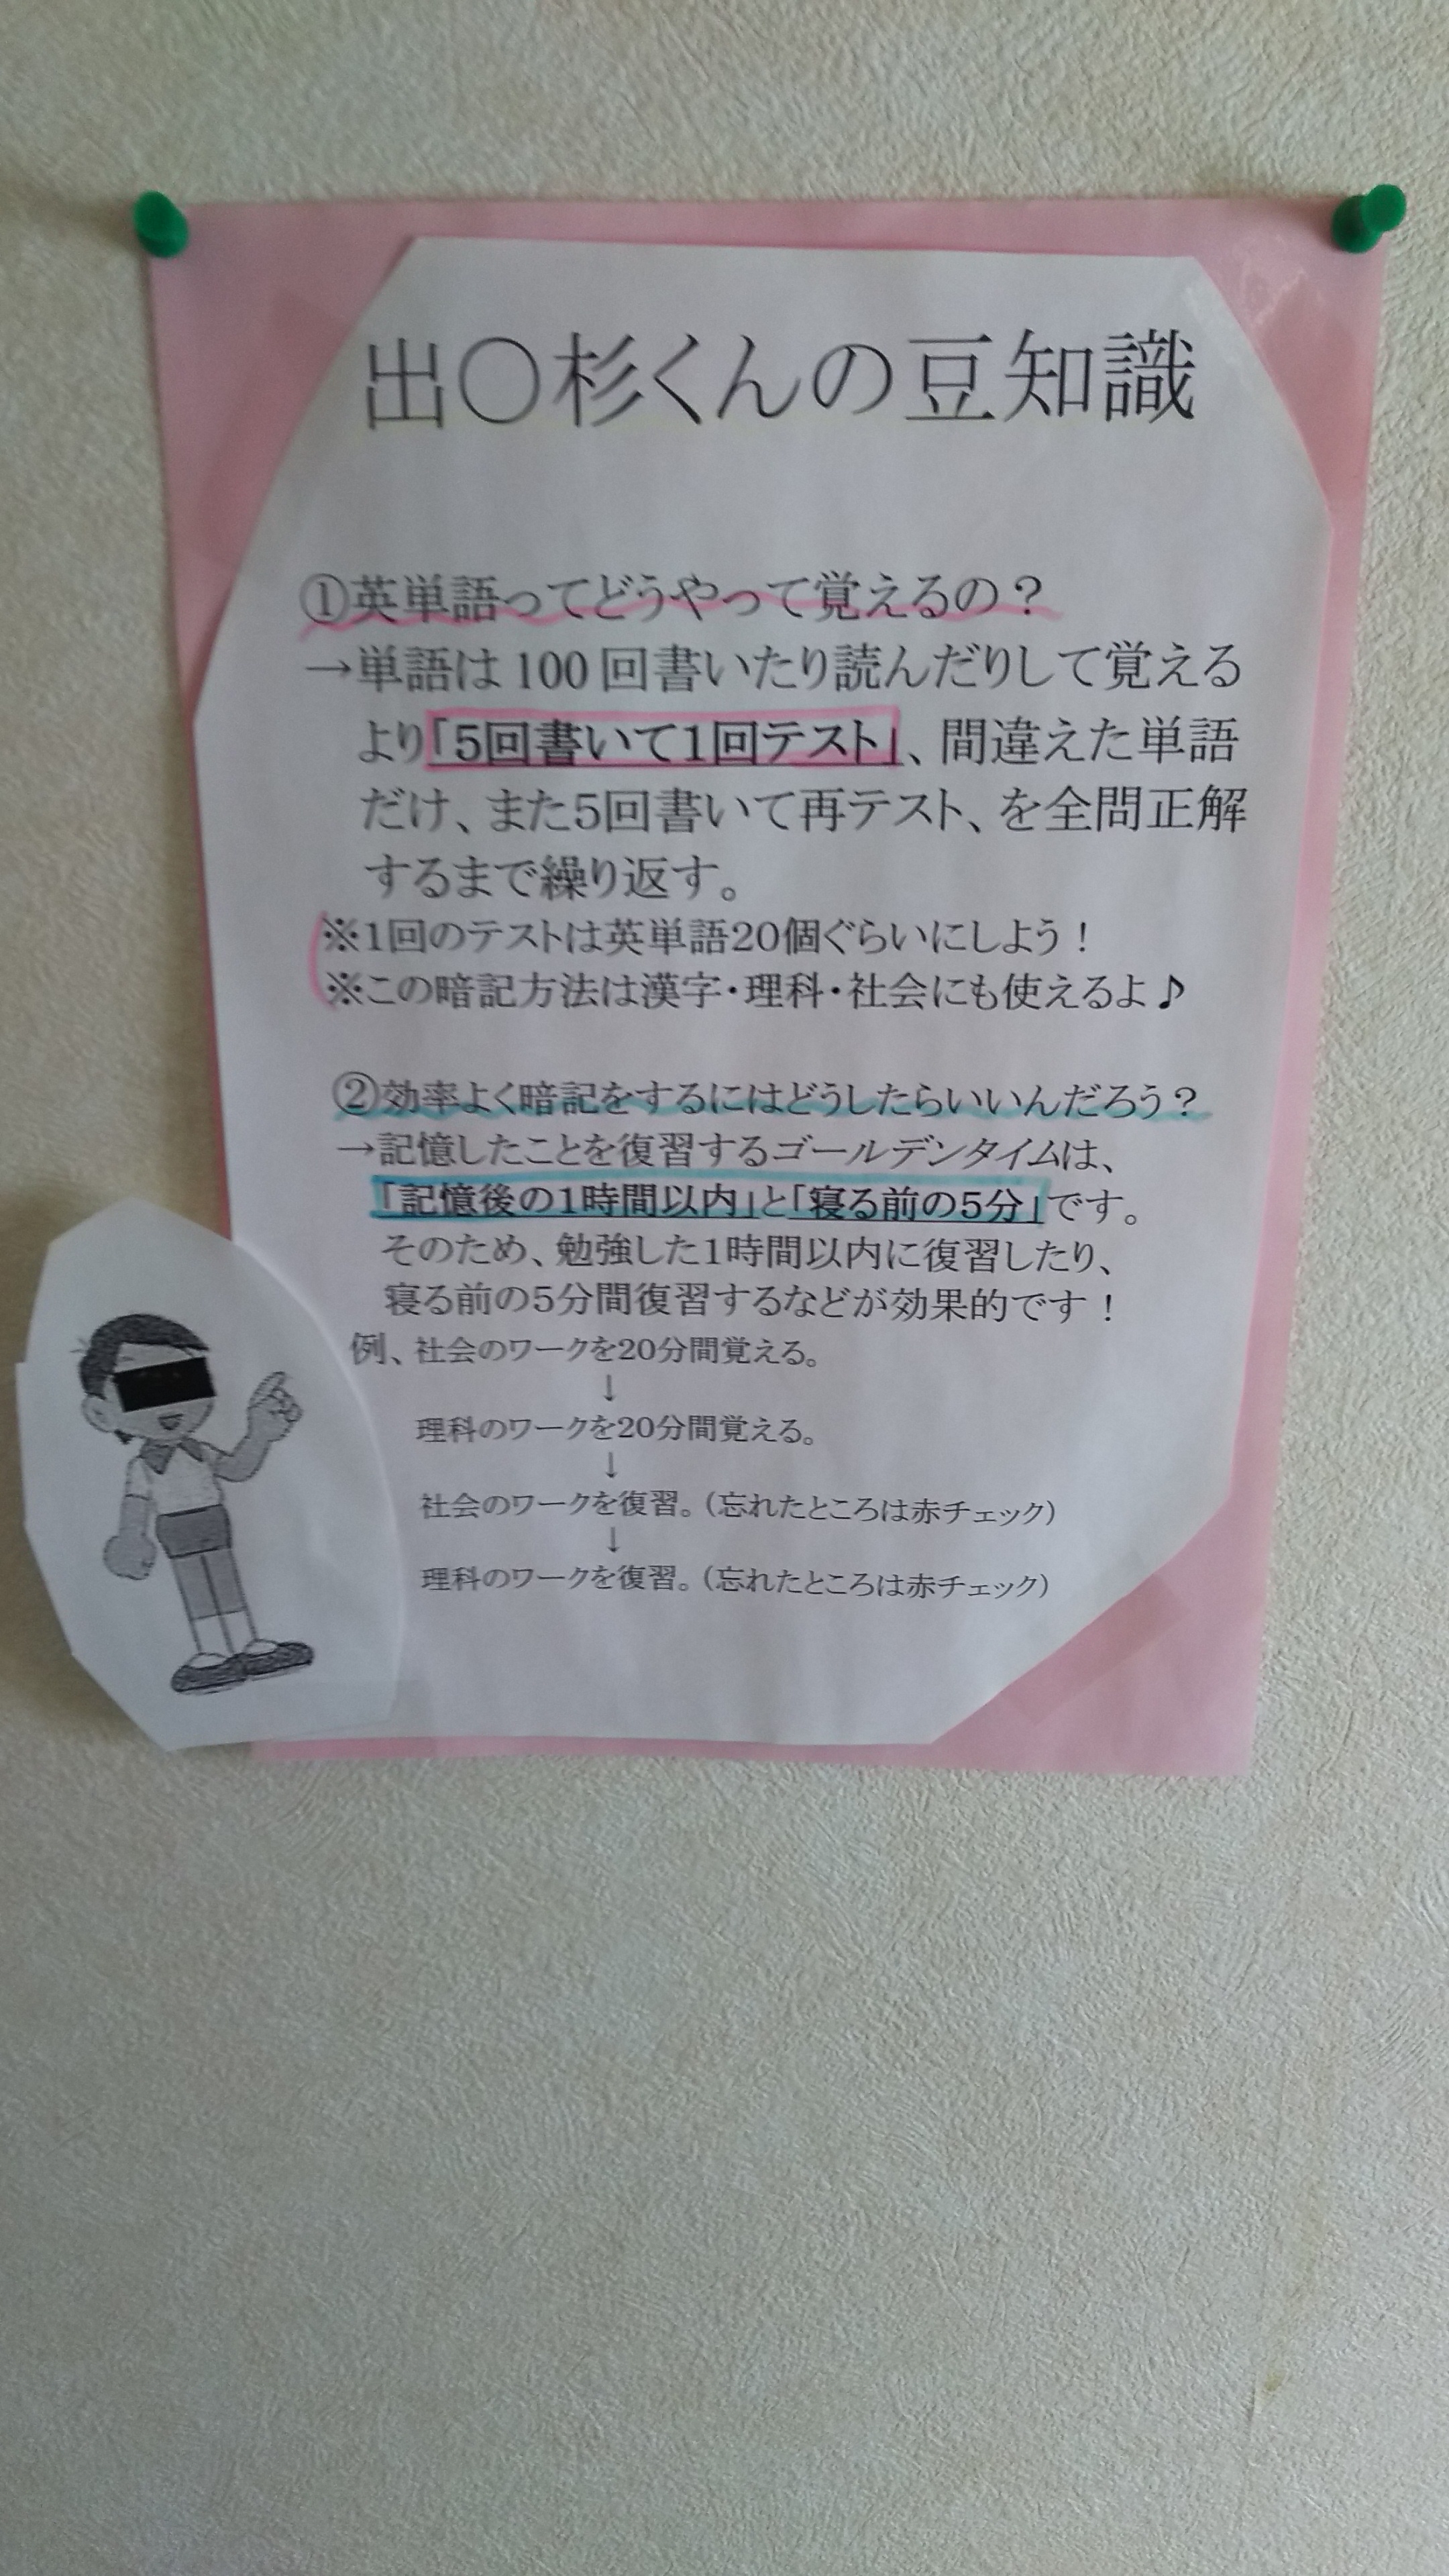 出〇杉くんの豆知識
①英単語ってどうやって覚えるの？
→単語は100回書いたり読んだりして覚える
より「5回書いて1回テスト」、間違えた単語
だけ、また5回書いて再テスト、を全問正解
するまで繰り返す。
※1回のテストは英単語20個ぐらいにしよう！
※この暗記方法は漢字・理科・社会にも使えるよ♪
②効率よく暗記をするにはどうしたらいいんだろう？
→記憶したことを復習するゴールデンタイムは、
「記憶後の1時間以内」と「寝る前の5分」です。
そのため、勉強した1時間以内に復習したり、
寝る前の5分間復習するなどが効果的です！
例、社会のワークを20分間覚える。
↓
理科のワークを20分間覚える。
↓
社会のワークを復習。（忘れたところは赤チェック）
↓
理科のワークを復習。（忘れたところは赤チェック）